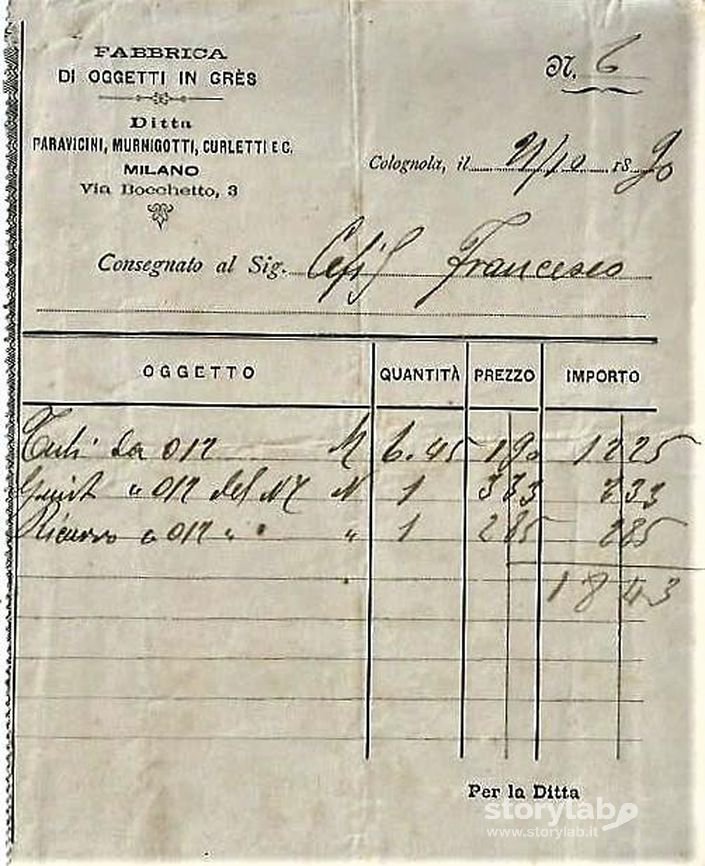 FABBRICA
DI OGGETTI IN GRÈS
Ditta
PARAVICINI, MURNIGOTTI, CURLETTI E C.
MILANO
Via Bocchetto, 3
N. 6
Colognola, il 21/10 1890
Consegnato al Sig. Francesco
OGGETTO QUANTITÀ PREZZO IMPORTO
Tubi da 012 M 6.45 190 1225
012 del N 1 333 333
012 " " 1 285 285
1843
Per la Ditta
storylab
www.storylab.it